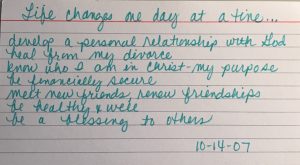 Life changes one day at a time...
develop a personal relationship with God
heal from my divorce
know who I am in Christ - my purpose
be financially secure
meet new friends, renew friendships
be healthy & well
be a blessing to others
10-14-07